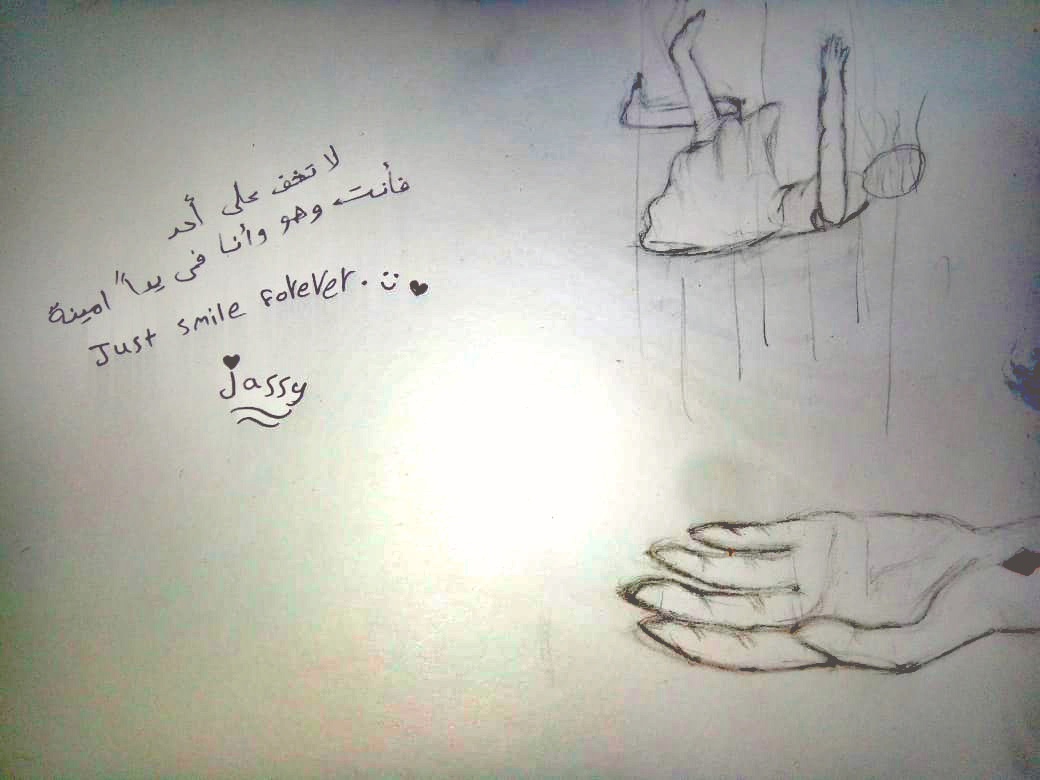 لا تخف على أحد
فأنت وهو وأنا فى يداً امينة
Just smile forever. :)
Jassy